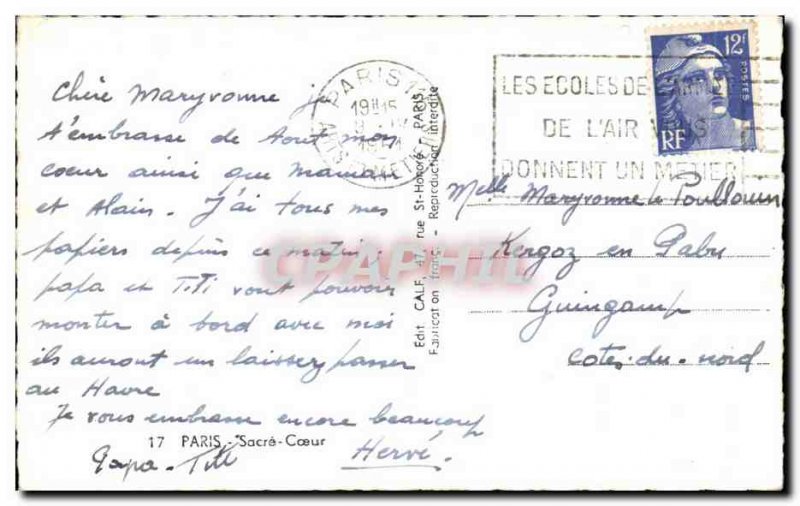 Chère Maryvonne je
t'embrasse de tout mon
coeur ainsi que maman
et Alain. J'ai tous mes
papiers depuis ce matin.
papa et Titi vont pouvoir
monter à bord avec moi
ils auront un laissez passer
au Havre
Je vous embrasse encore beaucoup
Hervé.
Papa - Titi
17 PARIS - Sacré-Cœur
Edit. CALF, 47, rue St-Honoré - PARIS
Fabrication franç. - Reproduction interdite
PARIS
19H15
LES ECOLES DE L'ARMEE
DE L'AIR VOUS
DONNENT UN METIER
12F
POSTES
RF
Melle Maryvonne le Poullouin
Kergoz en Pabu
Guingamp
Cotes-du-nord
CPAPHIL